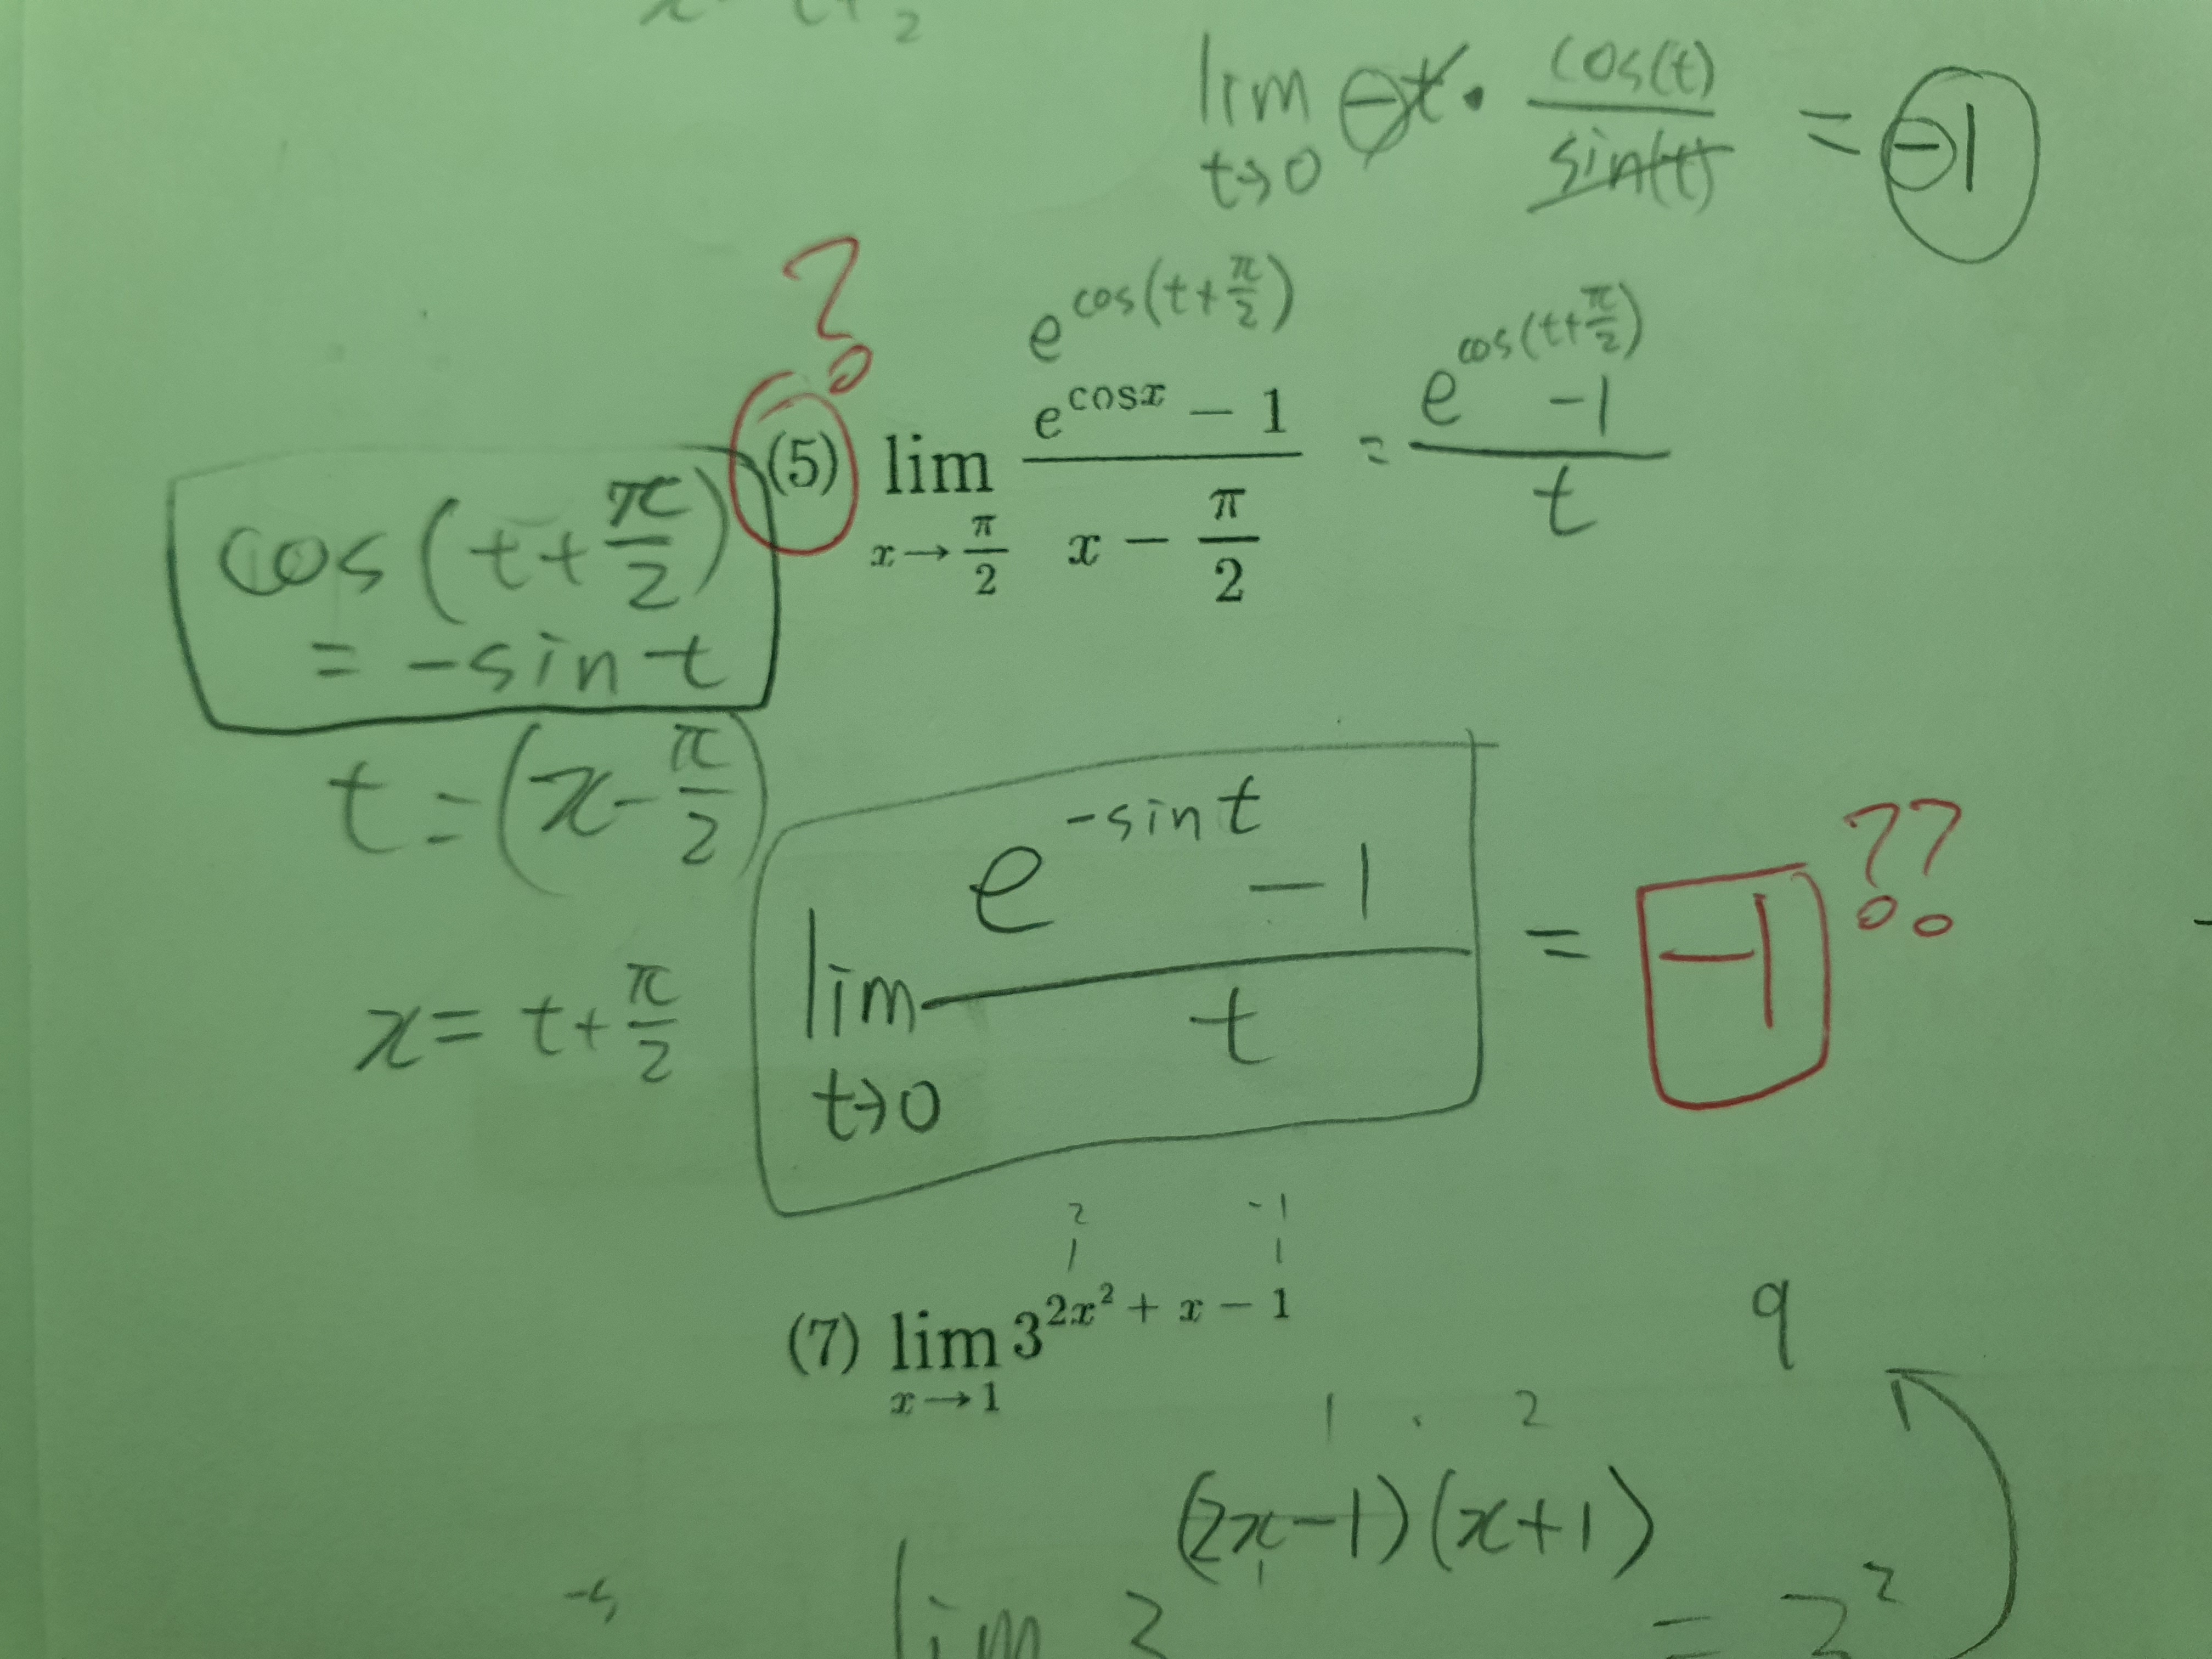 lim t→0 −t · cos(t)/sin(t) = −1
?
e^cos(t+π/2)
(5) lim x→π/2 (e^cosx − 1)/(x − π/2) = (e^cos(t+π/2) −1)/t
cos(t+π/2)
= -sin t
t = (x-π/2)
x = t+π/2
lim t→0 (e^-sin t − 1)/t = −1 ??
2 -1
1 1
(7) lim x→1 3^2x²+x−1
9
1 · 2
(2x-1)(x+1)
lim 3 = 3²